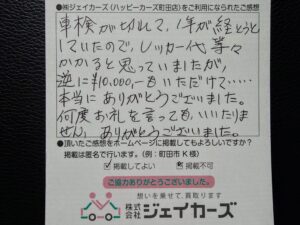 ●㈱ジェイカーズ(ハッピーカーズ町田店)をご利用になられたご感想
車検が切れて、1年が経とうと
していたので、レッカー代等々
かかると思っていましたが、
逆に¥10,000,-もいただけて・・・・・
本当にありがとうございました。
何度お礼を言っても、いいたりま
せん。ありがとうございました。
●頂いたご感想をホームページに掲載してもよろしいですか?
掲載は匿名で行います。(例:町田市 K様)
掲載してよい 掲載不可
ご協力ありがとうございました。
想いを乗せて、買取ります
株式会社ジェイカーズ